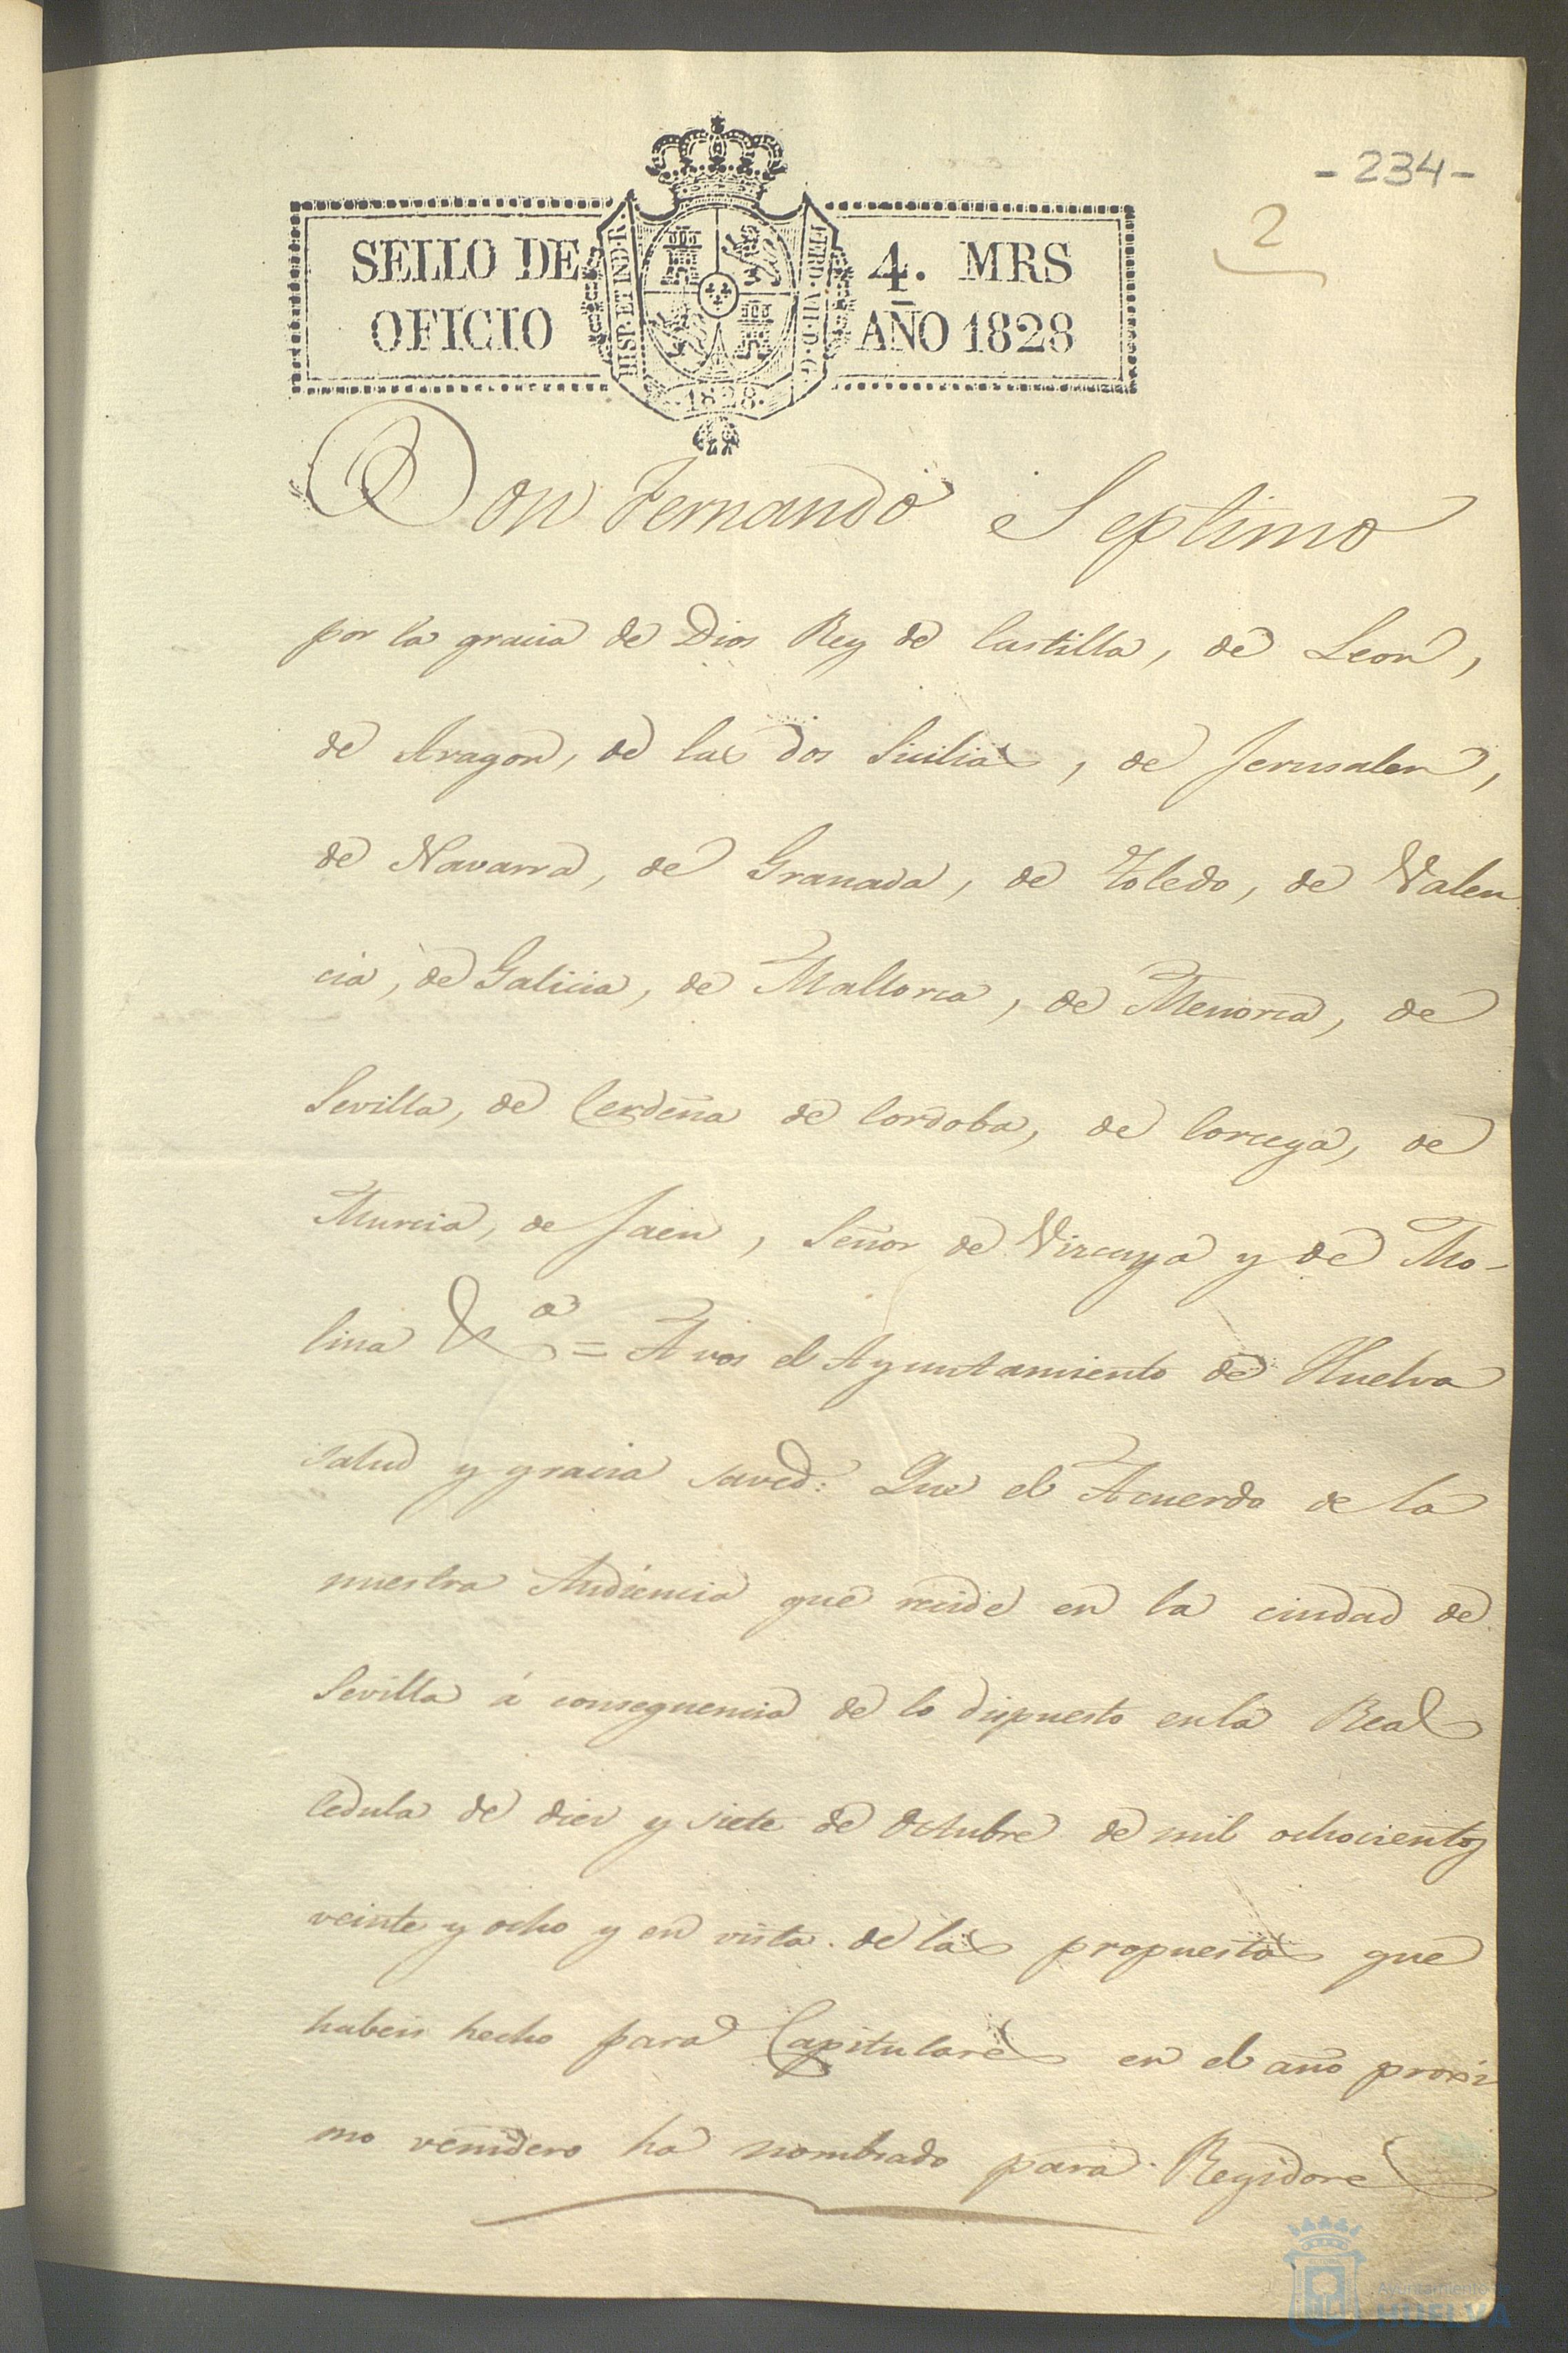 - 234 -
2
SELLO DE 4. MRS
OFICIO AÑO 1828
HISP. ET IND. R.
FERD. VII. D. G.
1828.
Don Fernando Septimo
por la gracia de Dios Rey de Castilla, de Leon,
de Aragon, de las dos Sicilias, de Jerusalen,
de Navarra, de Granada, de Toledo, de Valen
cia, de Galicia, de Mallorca, de Menorca, de
Sevilla, de Cerdeña de Cordoba, de Corcega, de
Murcia, de Jaen, Señor de Vizcaya y de Mo-
lina &a = A vos el Ayuntamiento de Huelva
salud y gracia saved: Que el Acuerdo de la
nuestra Audiencia que recide en la ciudad de
Sevilla á consequencia de lo dispuesto en la Real
Cedula de diez y siete de Octubre de mil ochocientos
veinte y ocho y en vista de las propuestas que
habeis hecho para Capitulares en el año proxi
mo venidero ha nombrado para Regidores
Ayuntamiento de
HUELVA